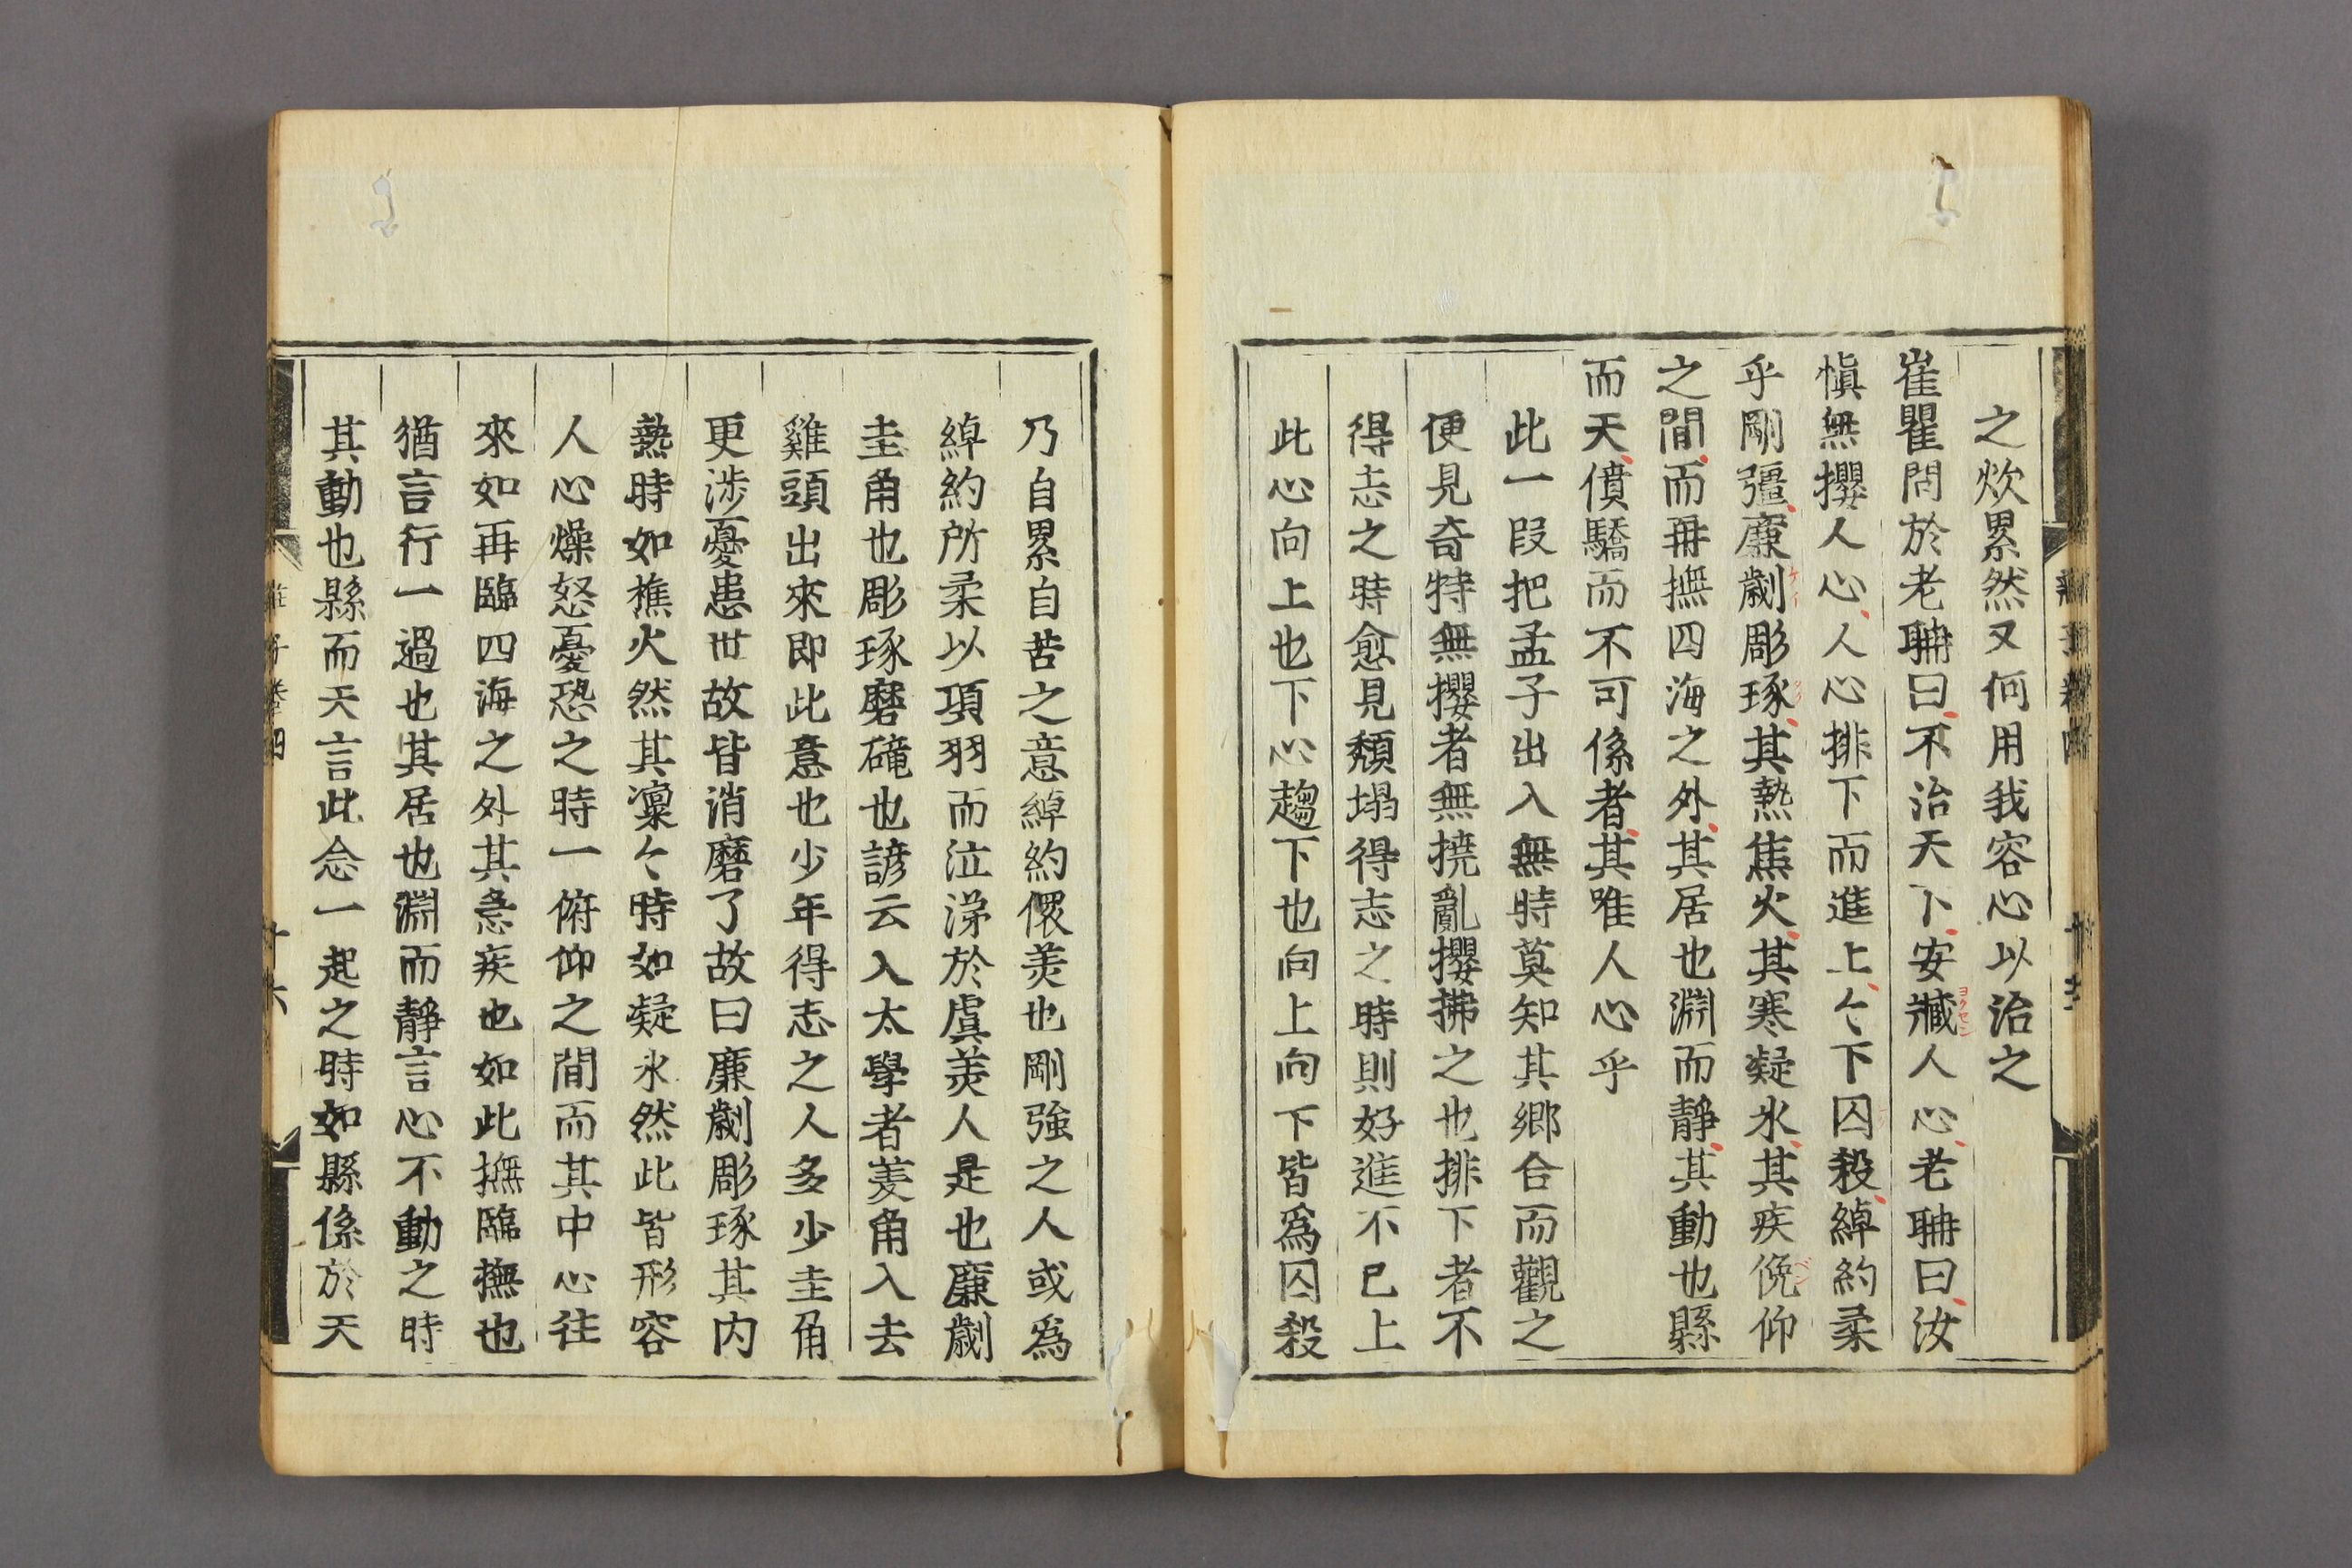 之炊累然又何用我容心以治之
崔瞿問於老聃曰不治天下安臧人心老聃曰汝
慎無攖人心人心排下而進上〻下囚殺綽約柔
乎剛彊廉劌彫琢其熱焦火其寒凝氷其疾俛仰
之間而再撫四海之外其居也淵而靜其動也縣
而天僨驕而不可係者其唯人心乎
此一段把孟子出入無時莫知其鄉合而觀之
便見奇特無攖者無撓亂攖拂之也排下者不
得志之時愈見頹塌得志之時則好進不已上
此心向上也下心趨下也向上向下皆爲囚殺
乃自累自苦之意綽約儇美也剛強之人或爲
綽約所柔以項羽而泣涕於虞美人是也廉劌
圭角也彫琢磨礲也諺云入太學者菱角入去
雞頭出來即此意也少年得志之人多少圭角
更涉憂患世故皆消磨了故曰廉劌彫琢其内
熱時如樵火然其凜〻時如凝氷然此皆形容
人心燥怒憂恐之時一俯仰之間而其中心往
來如再臨四海之外其急疾也如此撫臨撫也
猶言行一過也其居也淵而靜言心不動之時
其動也縣而天言此念一起之時如縣係於天
莊子卷四 十六